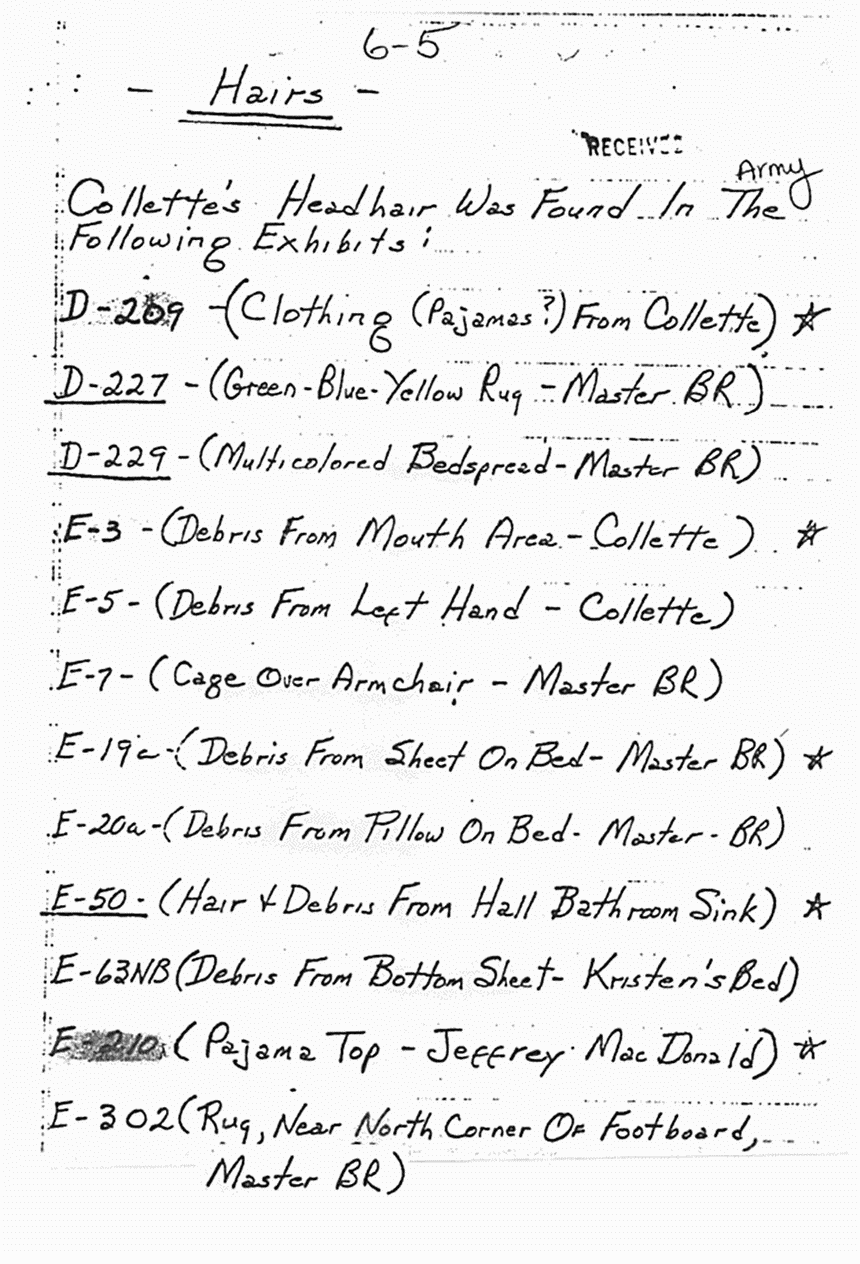 6-5
- Hairs -
RECEIVED
Army
Collette's Headhair Was Found In The
Following Exhibits:
D-209 -(Clothing (Pajamas?) From Collette) ☆
D-227 - (Green-Blue-Yellow Rug - Master BR)
D-229 - (Multicolored Bedspread - Master BR)
E-3 - (Debris From Mouth Area - Collette) ☆
E-5 - (Debris From Left Hand - Collette)
E-7 - (Cage Over Armchair - Master BR)
E-19a-(Debris From Sheet On Bed- Master BR) ☆
E-20a-(Debris From Pillow On Bed- Master-BR)
E-50 - (Hair & Debris From Hall Bathroom Sink) ☆
E-63NB(Debris From Bottom Sheet- Kristen's Bed)
E-210 (Pajama Top - Jeffrey MacDonald) ☆
E-302(Rug, Near North Corner Of Footboard,
Master BR)